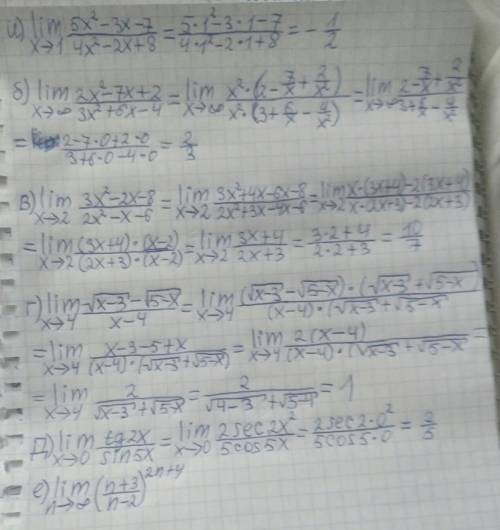 а) lim x→1 (5x²-3x-7)/(4x²-2x+8) = (5·1²-3·1-7)/(4·1²-2·1+8) = -1/2
б) lim x→∞ (2x²-7x+2)/(3x²+6x-4) = lim x→∞ (x²·(2-7/x+2/x²))/(x²·(3+6/x-4/x²)) = lim x→∞ (2-7/x+2/x²)/(3+6/x-4/x²)
= (2-7·0+2·0)/(3+6·0-4·0) = 2/3
в) lim x→2 (3x²-2x-8)/(2x²-x-6) = lim x→2 (3x²+4x-6x-8)/(2x²+3x-4x-6) = lim x→2 (x·(3x+4)-2(3x+4))/(x·(2x+3)-2(2x+3))
= lim x→2 ((3x+4)·(x-2))/((2x+3)·(x-2)) = lim x→2 (3x+4)/(2x+3) = (3·2+4)/(2·2+3) = 10/7
г) lim x→4 (√x-3-√5-x)/(x-4) = lim x→4 ((√x-3-√5-x)·(√x-3+√5-x))/((x-4)·(√x-3+√5-x))
= lim x→4 (x-3-5+x)/((x-4)·(√x-3+√5-x)) = lim x→4 2(x-4)/((x-4)·(√x-3+√5-x)) =
= lim x→4 2/(√x-3+√5-x) = 2/(√4-3+√5-4) = 1
Д) lim x→0 tg2x/sin5x = lim x→0 2sec2x²/5cos5x = 2sec2·0²/5cos5·0 = 2/5
е) lim n→∞ ((n+3)/(n-2))^(2n+4)